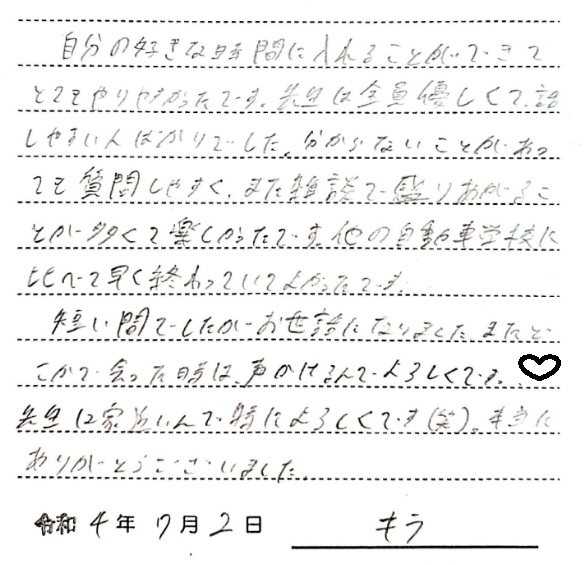 自分の好きな時間に入れることができて
とてもやりやすかったです。先生は全員優しくて、話
しやすい人ばかりでした。分からないことがあっ
ても質問しやすく、また雑談で盛りあがるこ
とが多くて楽しかったです。他の自動車学校に
比べて早く終わっていてよかったです。
短い間でしたがお世話になりました。またど
こかで会った時は、声かけるんでよろしくです。♡
先生は家近いんで特によろしくです(笑)。本当に
ありがとうございました。
令和4年7月2日 キラ